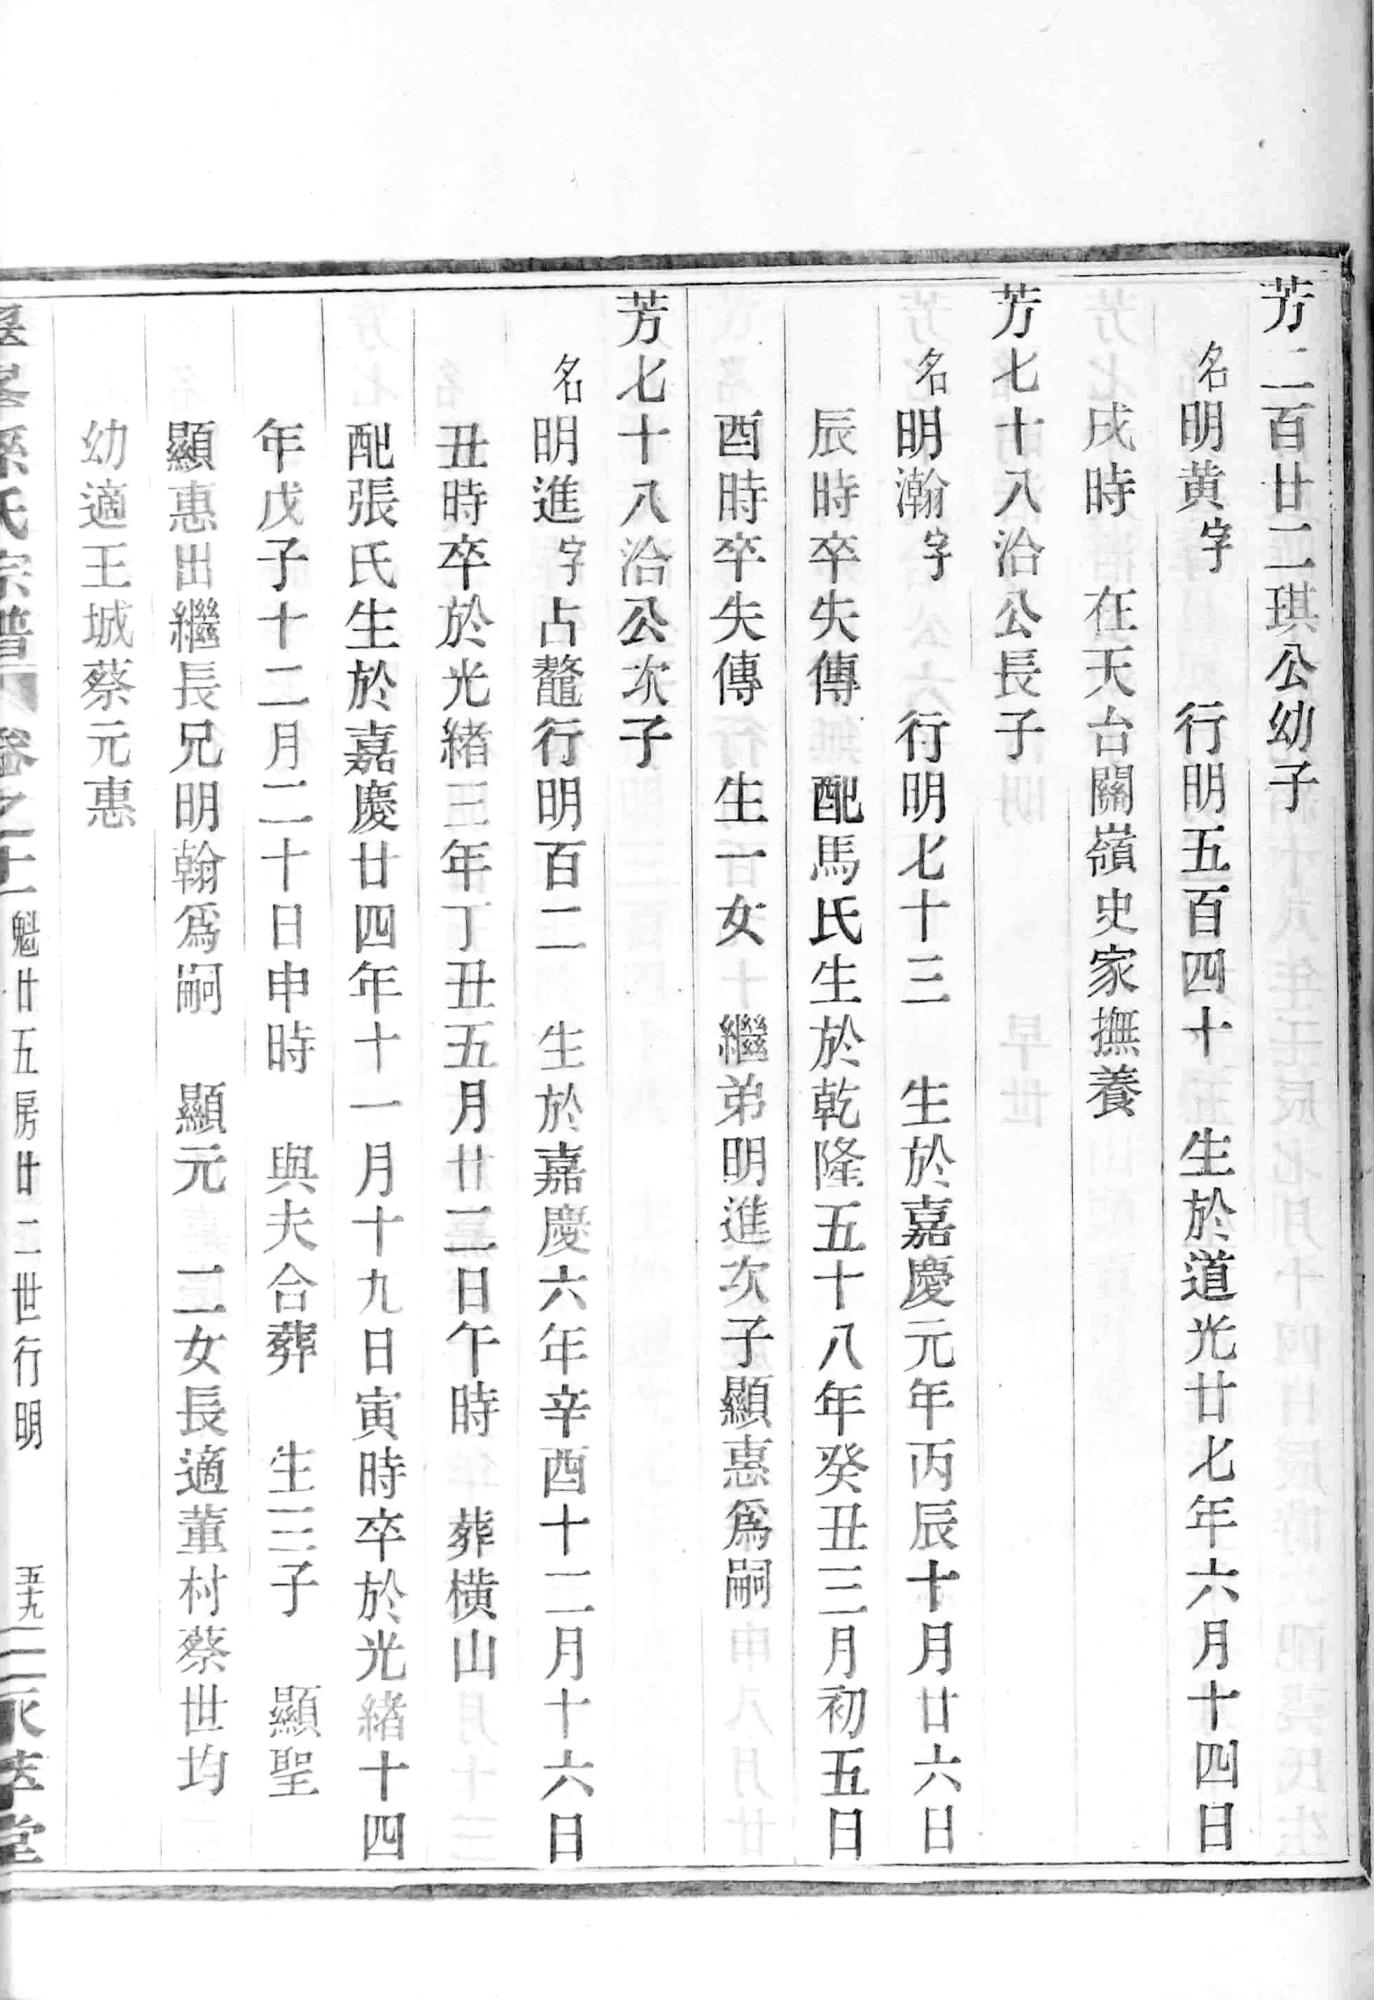 芳二百廿二琪公幼子
名明黄字　行明五百四十　生於道光廿七年六月十四日
戌時　在天台關嶺史家撫養
芳七十八洽公長子
名明瀚字　行明七十三　生於嘉慶元年丙辰十月廿六日
辰時卒失傳　配馬氏生於乾隆五十八年癸丑三月初五日
酉時卒失傳　生一女　繼弟明進次子顯惠爲嗣
芳七十八洽公次子
名明進字占鼇行明百二　生於嘉慶六年辛酉十二月十六日
丑時卒於光緒三年丁丑五月廿二日午時　葬橫山
配張氏生於嘉慶廿四年十一月十九日寅時卒於光緒十四
年戊子十二月二十日申時　與夫合葬　生三子　顯聖
顯惠出繼長兄明翰爲嗣　顯元　二女長適董村蔡世均
幼適王城蔡元惠
孫氏宗譜　卷之十一　魁廿五房廿二世行明　五十九　永萃堂